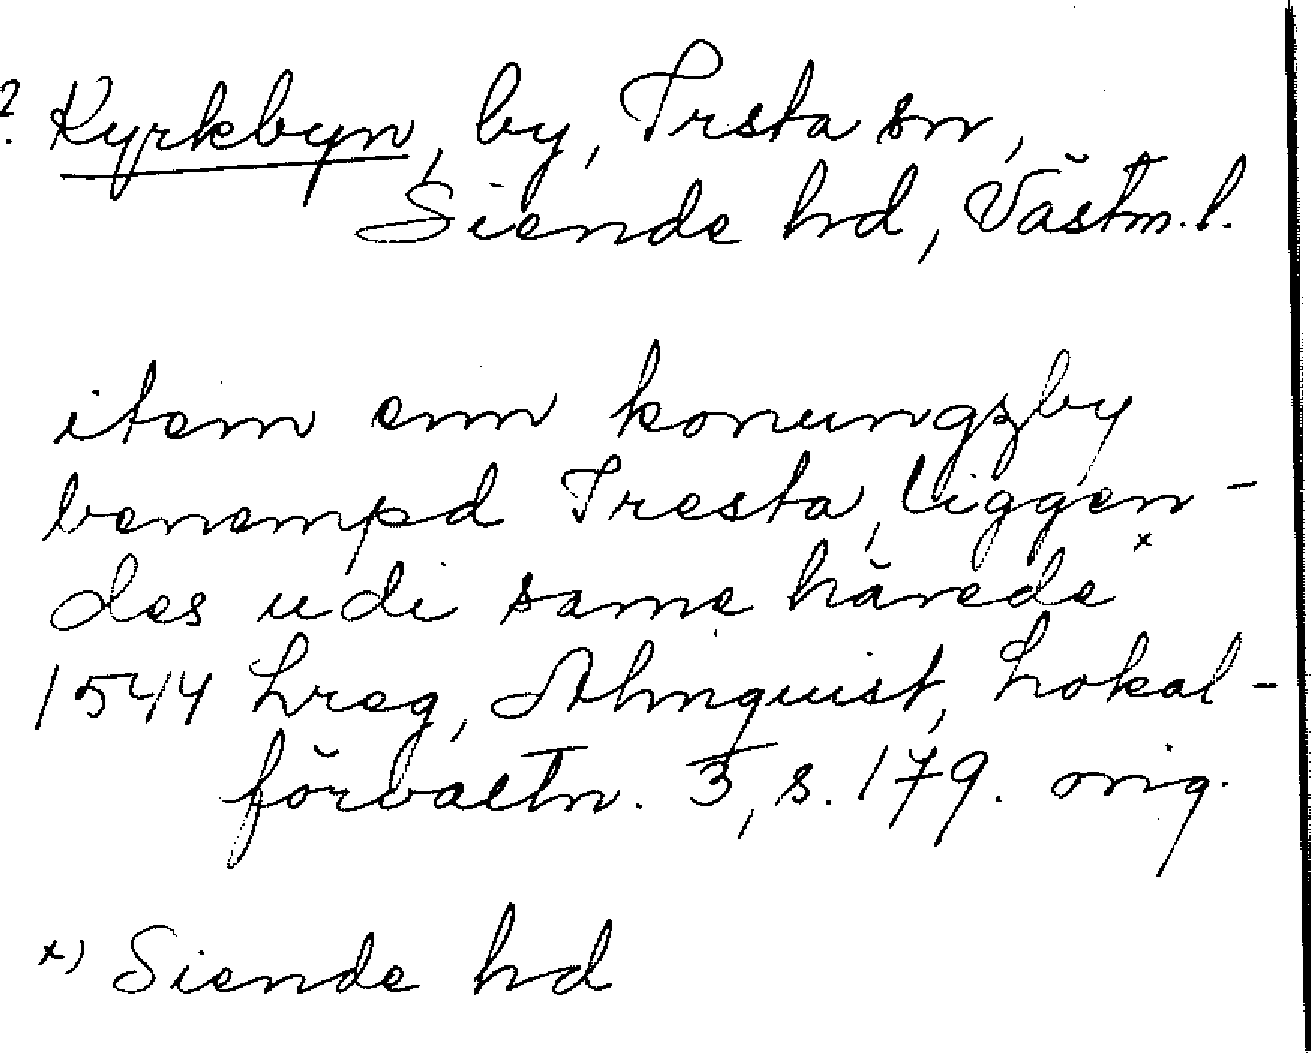 ? Kyrkbyn, by, Irsta sn,
Siende hd, Västm.l.
item enn konungzby
benempd Iresta, liggen-
des udi same härede x
1544 Lreg, Almquist, Lokal-
förvaltn. 3, s. 179. orig.
x) Siende hd